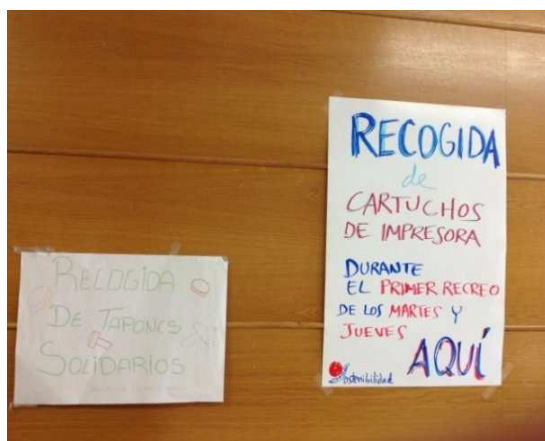 RECOGIDA
DE TAPONES
SOLIDARIOS
RECOGIDA
de
CARTUCHOS
DE IMPRESORA
DURANTE
EL PRIMER RECREO
DE LOS MARTES Y
JUEVES
AQUÍ
Sostenibilidad